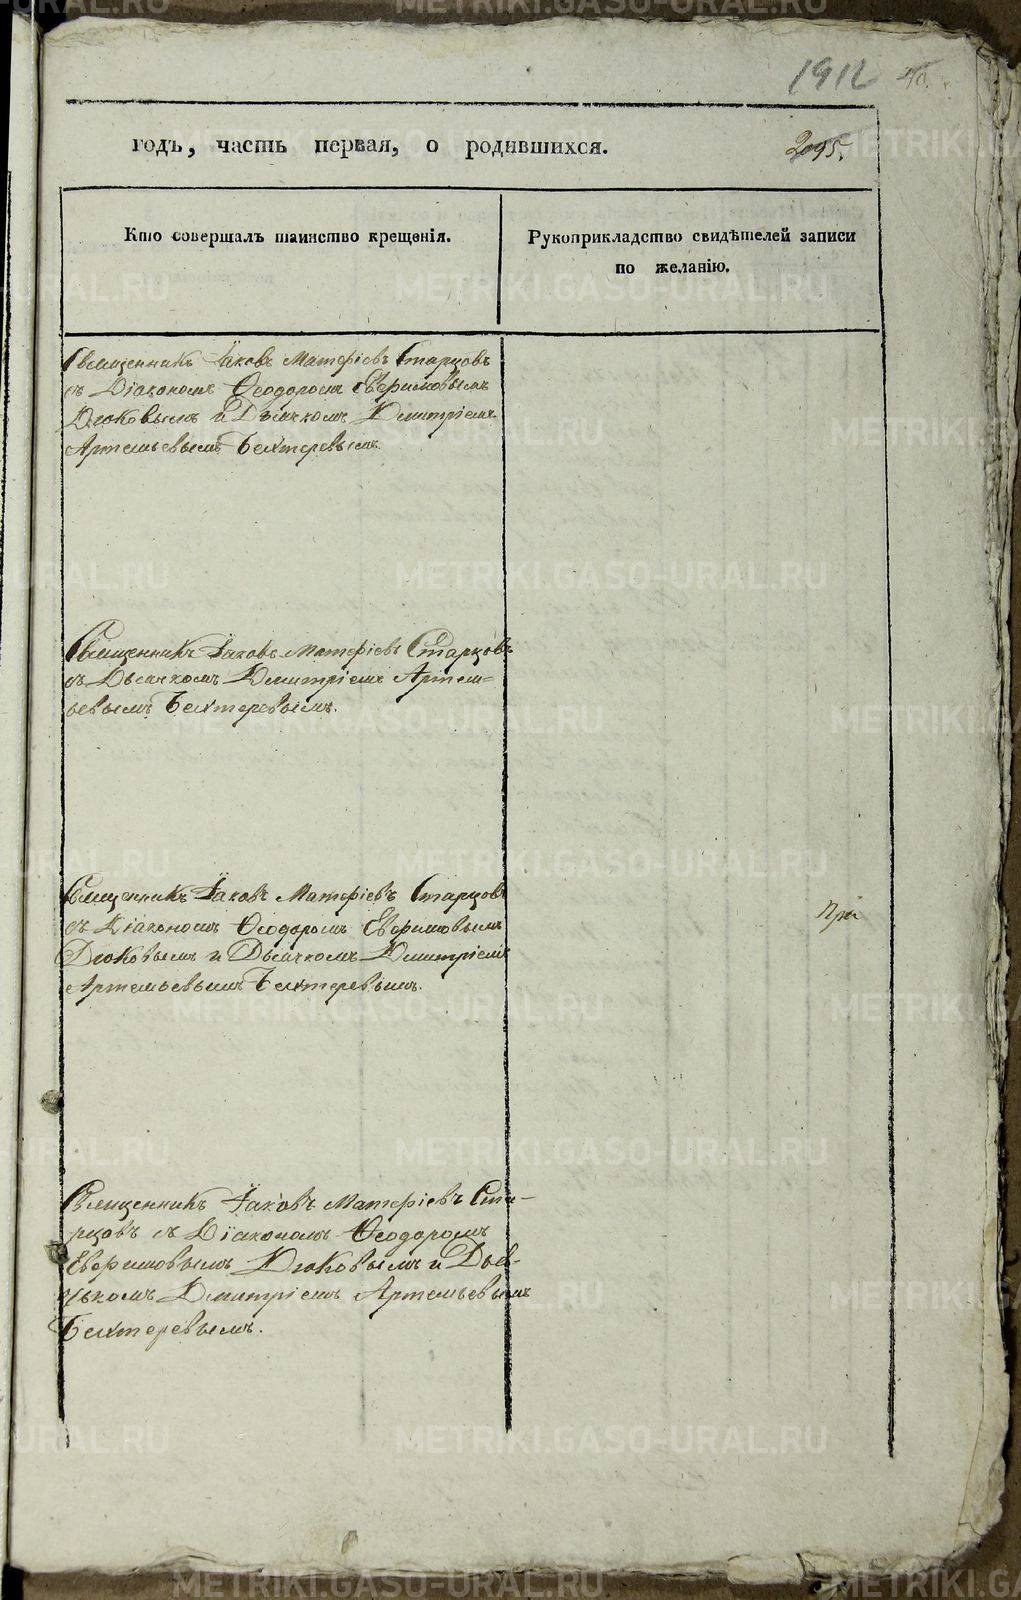 1912
годъ, часть первая, о родившихся.
2095.
Кто совершалъ таинство крещенія.
Рукоприкладство свидѣтелей записи
по желанію.
Священникъ Іаковъ Матѳіевъ Старцовъ
съ Діакономъ Ѳеодоромъ Евѳимовымъ
Дюковымъ и Дьячкомъ Димитріемъ
Артемьевымъ Бехтеревымъ.
Священникъ Іаковъ Матѳіевъ Старцовъ
съ Дьячкомъ Димитріемъ Артемь-
евымъ Бехтеревымъ.
Священникъ Іаковъ Матѳіевъ Старцовъ
съ Діакономъ Ѳеодоромъ Евѳимовымъ
Дюковымъ и Дьячкомъ Димитріемъ
Артемьевымъ Бехтеревымъ.
При
Священникъ Іаковъ Матѳіевъ Ста-
рцовъ съ Діакономъ Ѳеодоромъ
Евѳимовымъ Дюковымъ и Дья-
чькомъ Димитріемъ Артемьевымъ
Бехтеревымъ.
METRIKI.GASO-URAL.RU